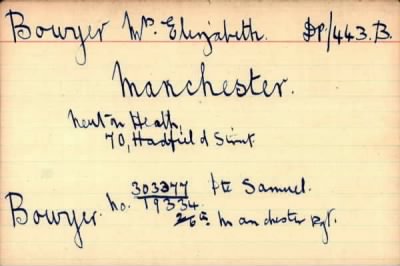 Bowyer Mrs. Elizabeth. DP/443.B.
Manchester.
Newton Heath,
70, Hadfield Street
303377 Pte Samuel.
Bowyer. No. 19334
2/6th Manchester Rgt.